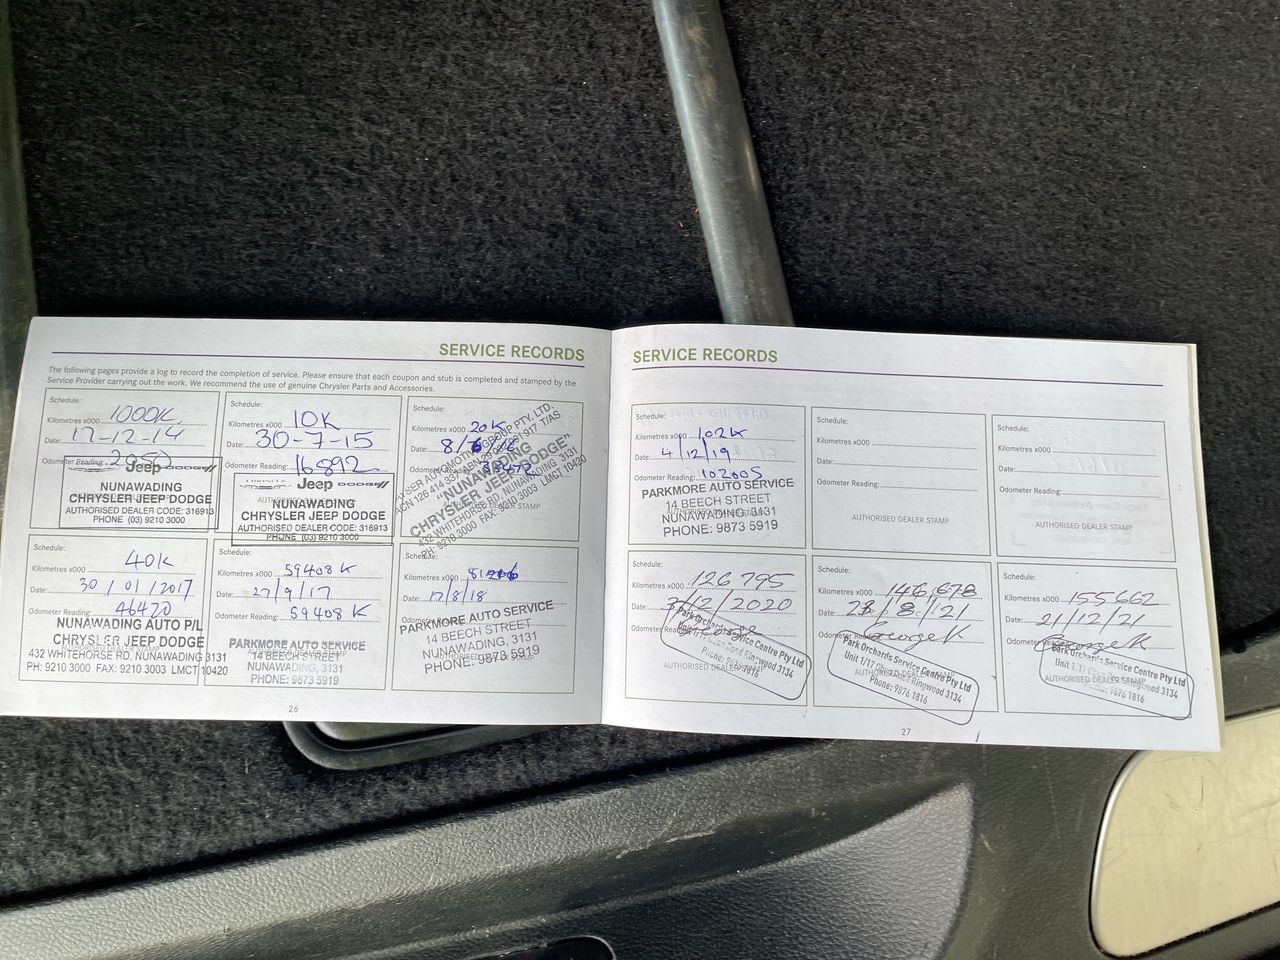 SERVICE RECORDS
The following pages provide a log to record the completion of service. Please ensure that each coupon and stub is completed and stamped by the
Service Provider carrying out the work. We recommend the use of genuine Chrysler Parts and Accessories.
Schedule:
Kilometres x000 1000K
Date: 17-12-14
Odometer Reading:
Jeep DODGE
NUNAWADING
CHRYSLER JEEP DODGE
AUTHORISED DEALER CODE: 316913
PHONE (03) 9210 3000
Schedule:
Kilometres x000 10K
Date: 30-7-15
Odometer Reading: 16892
CHRYSLER Jeep DODGE
NUNAWADING
CHRYSLER JEEP DODGE
AUTHORISED DEALER CODE: 316913
PHONE (03) 9210 3000
Schedule:
Kilometres x000 20K
Date: 8/6/16
AUTOMOTIVE GROUP PTY. LTD.
"NUNAWADING
CHRYSLER JEEP DODGE"
432 WHITEHORSE RD, NUNAWADING 3131
PH: 9210 3000 FAX: 9210 3003 LMCT 10420
Schedule:
Kilometres x000 40K
Date: 30/01/2017
Odometer Reading: 46420
NUNAWADING AUTO P/L
CHRYSLER JEEP DODGE
432 WHITEHORSE RD, NUNAWADING 3131
PH: 9210 3000 FAX: 9210 3003 LMCT 10420
Schedule:
Kilometres x000 59408 K
Date: 27/9/17
Odometer Reading: 59408 K
PARKMORE AUTO SERVICE
14 BEECH STREET
NUNAWADING, 3131
PHONE: 9873 5919
Schedule:
Kilometres x000
Date: 17/8/18
PARKMORE AUTO SERVICE
14 BEECH STREET
NUNAWADING, 3131
PHONE: 9873 5919
26
SERVICE RECORDS
Schedule:
Kilometres x000 102K
Date: 4/12/19
Odometer Reading: 102005
PARKMORE AUTO SERVICE
14 BEECH STREET
NUNAWADING, 3131
PHONE: 9873 5919
Schedule:
Kilometres x000
Date:
Odometer Reading:
AUTHORISED DEALER STAMP
Schedule:
Kilometres x000
Date:
Odometer Reading:
AUTHORISED DEALER STAMP
Schedule:
Kilometres x000 126795
Date: /12/2020
Odometer
Park Orchards Service Centre Pty Ltd
Ringwood 3134
Phone: 9876 1816
AUTHORISED DEALER STAMP
Schedule:
Kilometres x000 146,678
Date: /8/21
Odometer George K
Park Orchards Service Centre Pty Ltd
Unit 1/17 Ringwood 3134
Phone: 9876 1816
AUTHORISED DEALER STAMP
Schedule:
Kilometres x000 155662
Date: 21/12/21
Odometer George K
Park Orchards Service Centre Pty Ltd
Unit 1/17 Ringwood 3134
Phone: 9876 1816
AUTHORISED DEALER STAMP
27